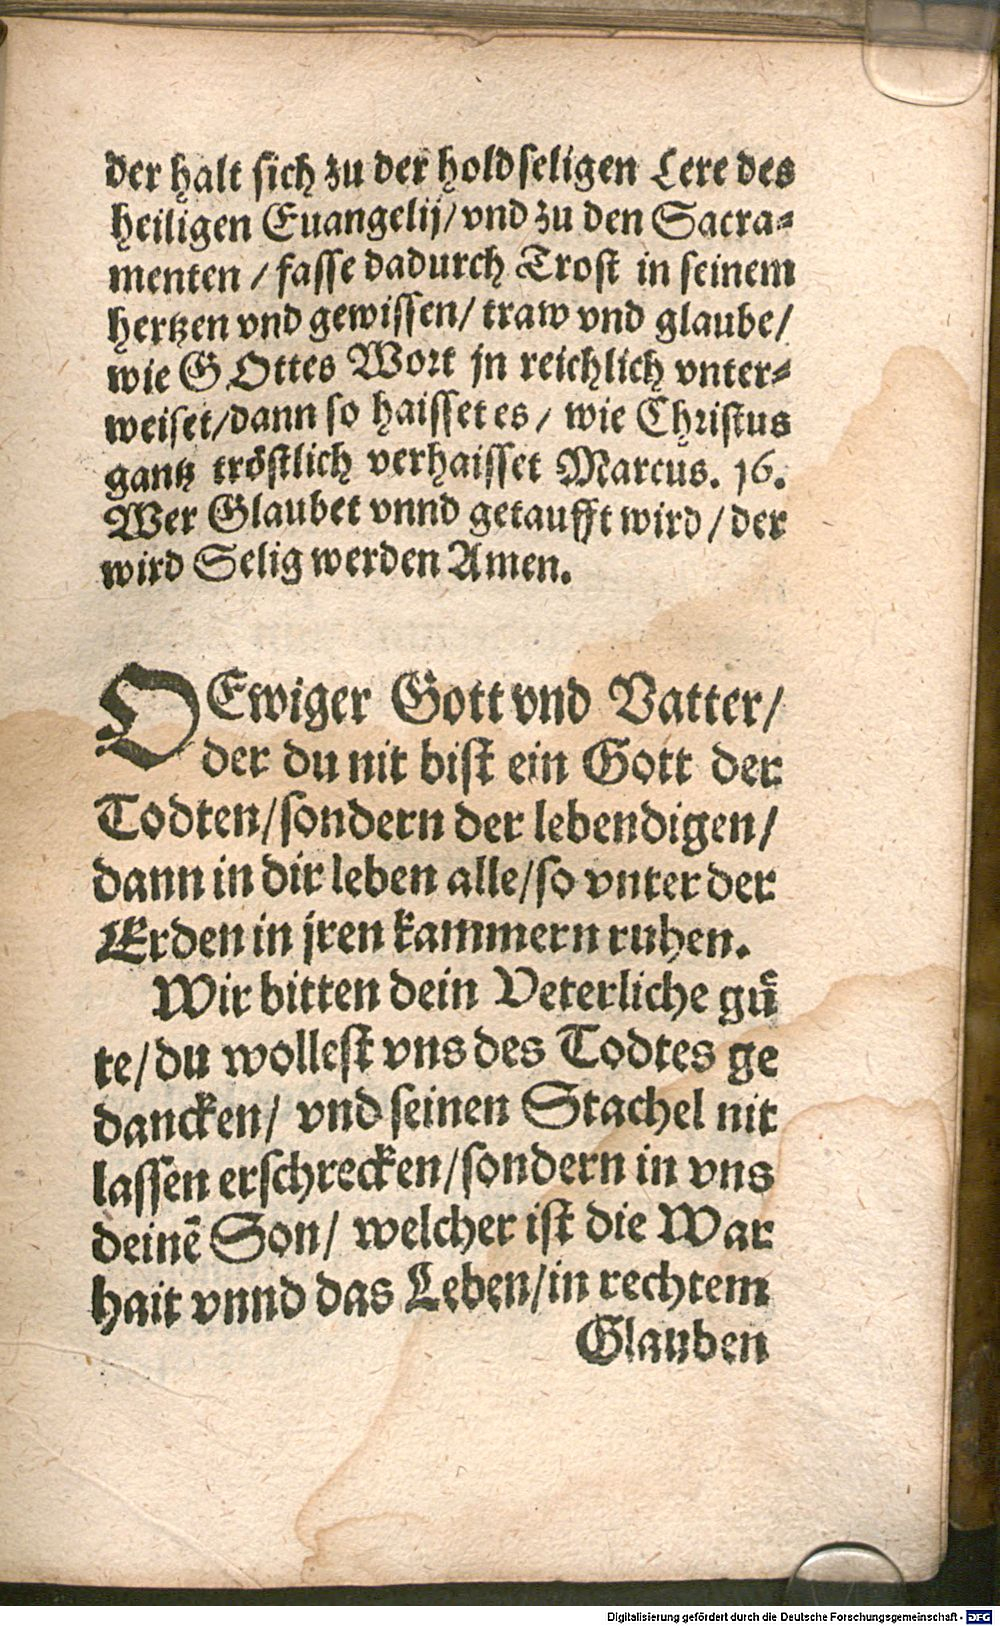 der halt sich zu der holdseligen Lere des
heiligen Euangelij/ vnd zu den Sacra⸗
menten / fasse dadurch Trost in seinem
hertzen vnd gewissen/ traw vnd glaube/
wie GOttes Wort jn reichlich vnter⸗
weiset/dann so haisset es/ wie Christus
gantz tröstlich verhaisset Marcus. 16.
Wer Glaubet vnnd getaufft wird/ der
wird Selig werden Amen.
O Ewiger Gott vnd Vatter/
der du nit bist ein Gott der
Todten/sondern der lebendigen/
dann in dir leben alle/so vnter der
Erden in jren kammern ruhen.
Wir bitten dein Veterliche guͤ
te/du wollest vns des Todtes ge
dancken/ vnd seinen Stachel nit
lassen erschrecken/sondern in vns
deinē Son/ welcher ist die War
hait vnnd das Leben/in rechtem
Glauben
Digitalisierung gefördert durch die Deutsche Forschungsgemeinschaft - DFG